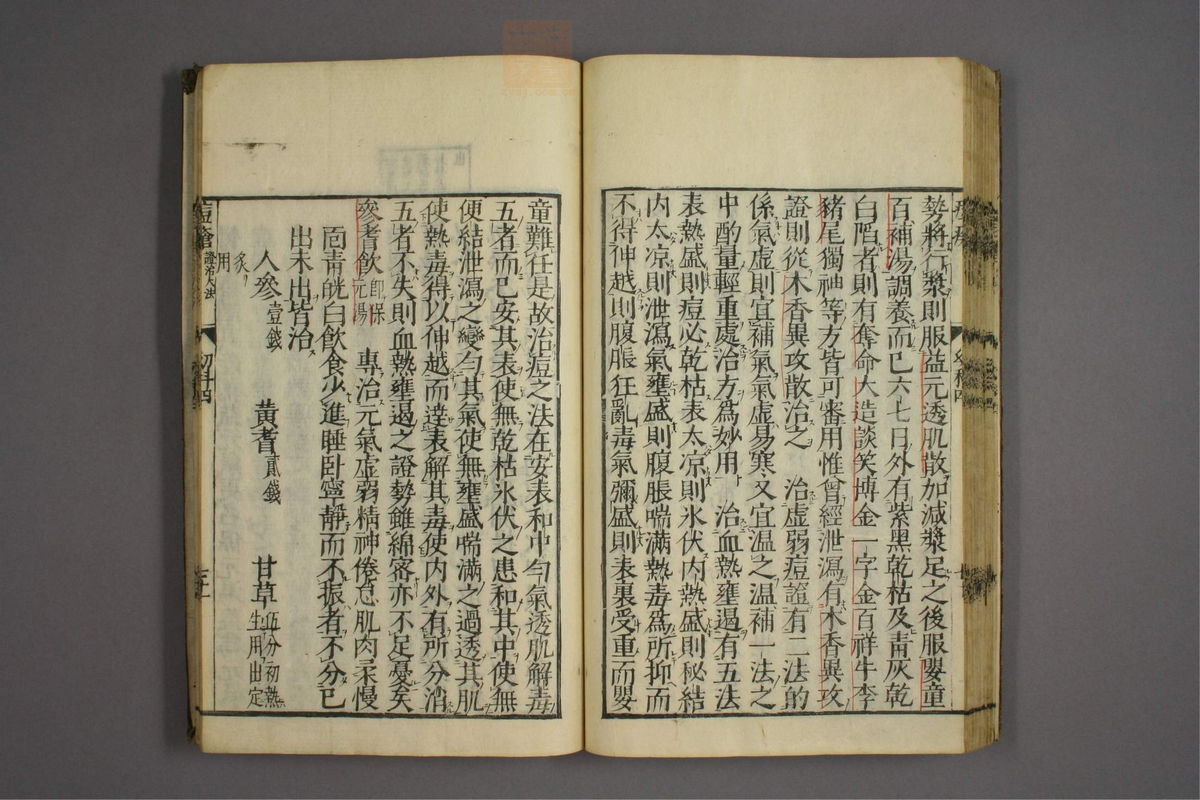 勢將行漿則服益元透肌散加減漿足之後服嬰童
百補湯調養而已六七日外有紫黑乾枯及靑灰乾
白陷者則有奪命大造談笑博金一字金百祥牛李
豬尾獨神等方皆可審用惟曾經泄瀉有木香異攻
證則從木香異攻散治之 治虛弱痘證有二法的
係氣虛則宜補氣氣虛易寒又宜温之温補一法之
中酌量輕重處治方爲妙用 治血熱壅遏有五法
表熱盛則痘必乾枯表太凉則氷伏內熱盛則秘結
內太凉則泄瀉氣壅盛則腹脹喘滿熱毒爲所抑而
不得伸越則腹脹狂亂毒氣彌盛則表裏受重而嬰
童難任是故治痘之法在安表和中勻氣透肌解毒
五者而已安其表使無乾枯氷伏之患和其中使無
便結泄瀉之變勻其氣使無壅盛喘滿之過透其肌
使熱毒得以伸越而達表解其毒使内外有所分消
五者不失則血熱壅遏之證勢雖綿密亦不足憂矣
參耆飲卽保元湯 專治元氣虛弱精神倦怠肌肉柔慢
面靑㿠白飲食少進睡臥寧靜而不振者不分已
出未出皆治
人參壹錢 黃耆貳錢 甘草伍分初熱生用出定
炙用
痘瘡證治大法 幼科四